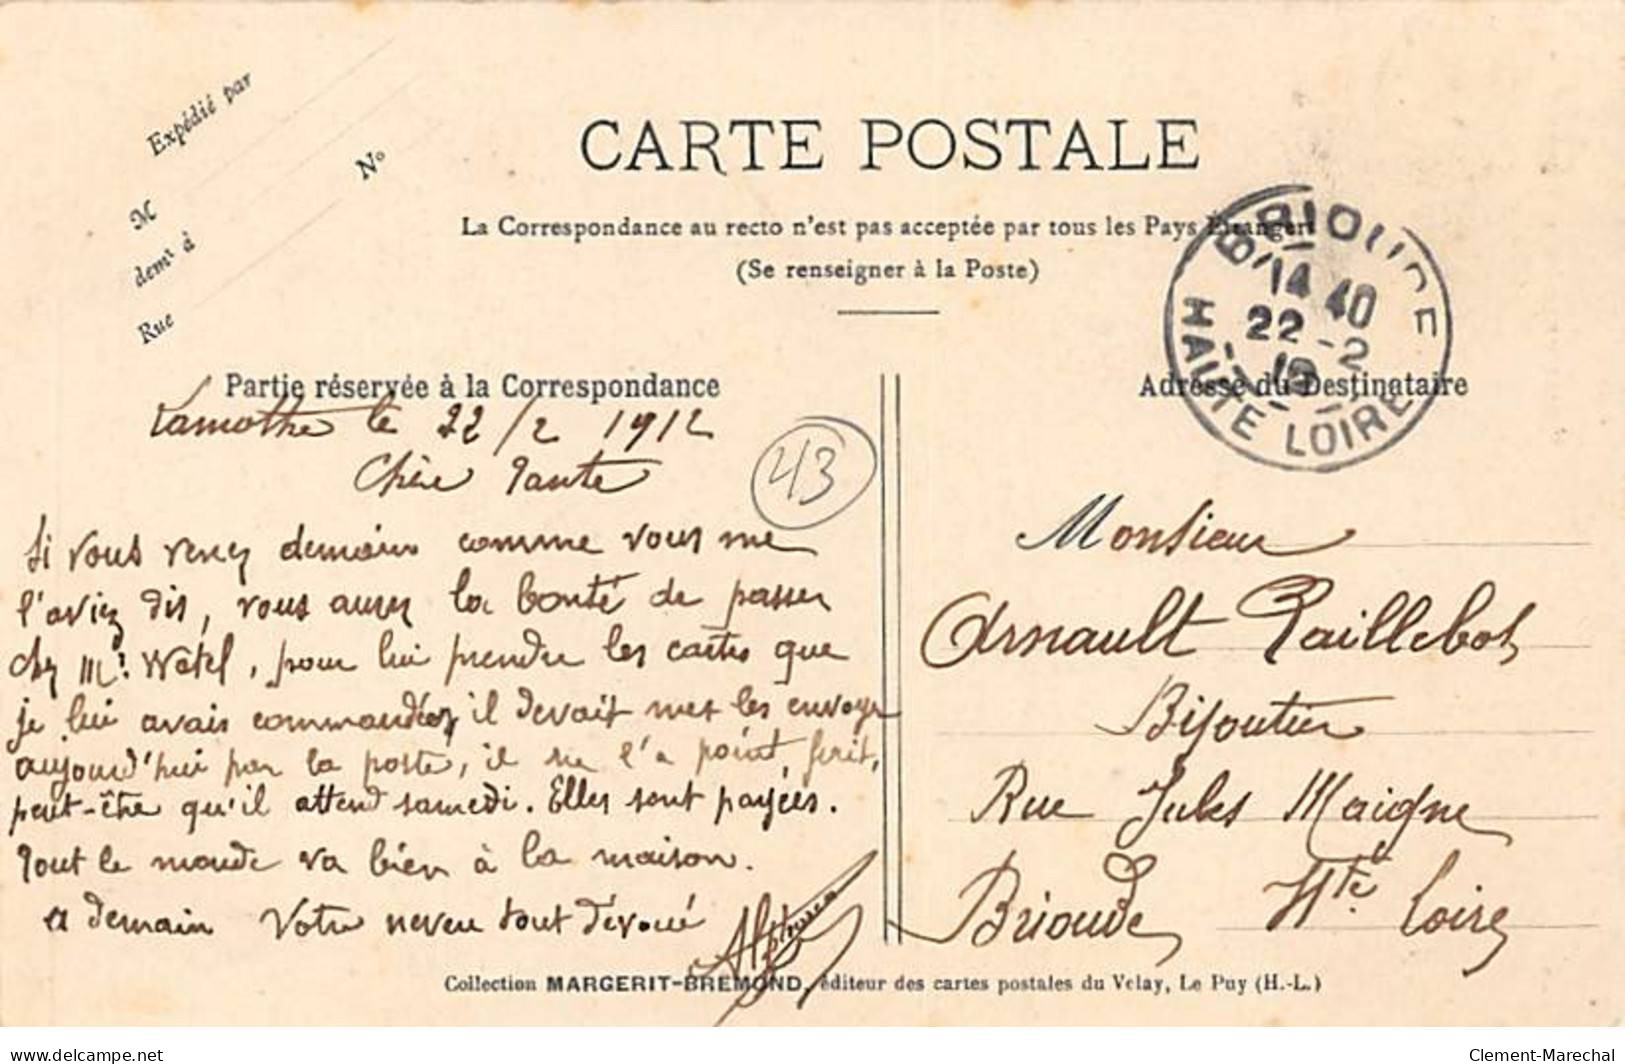 Expédié par
M
demt à
N°
Rue
CARTE POSTALE
La Correspondance au recto n'est pas acceptée par tous les Pays Étrangers
(Se renseigner à la Poste)
BRIOUDE
14 40
22 - 2
12
HAUTE LOIRE
Partie réservée à la Correspondance
Lamothe le 22/2 1912
Chère Tante
43
Si vous venez demain comme vous me
l'aviez dis, vous aurez la bonté de passer
chez Mr. Watel, pour lui prendre les cartes que
je lui avais commandées, il devait me les envoyer
aujourd'hui par la poste, il ne l'a point fait,
peut-être qu'il attend samedi. Elles sont payées.
Tout le monde va bien à la maison.
a demain Votre neveu tout dévoué
Adresse du Destinataire
Monsieur
Arnault Taillebot
Bijoutier
Rue Jules Maigne
Brioude Hte Loire
Collection MARGERIT-BREMOND, éditeur des cartes postales du Velay, Le Puy (H.-L.)
delcampe.net
Clement-Marechal